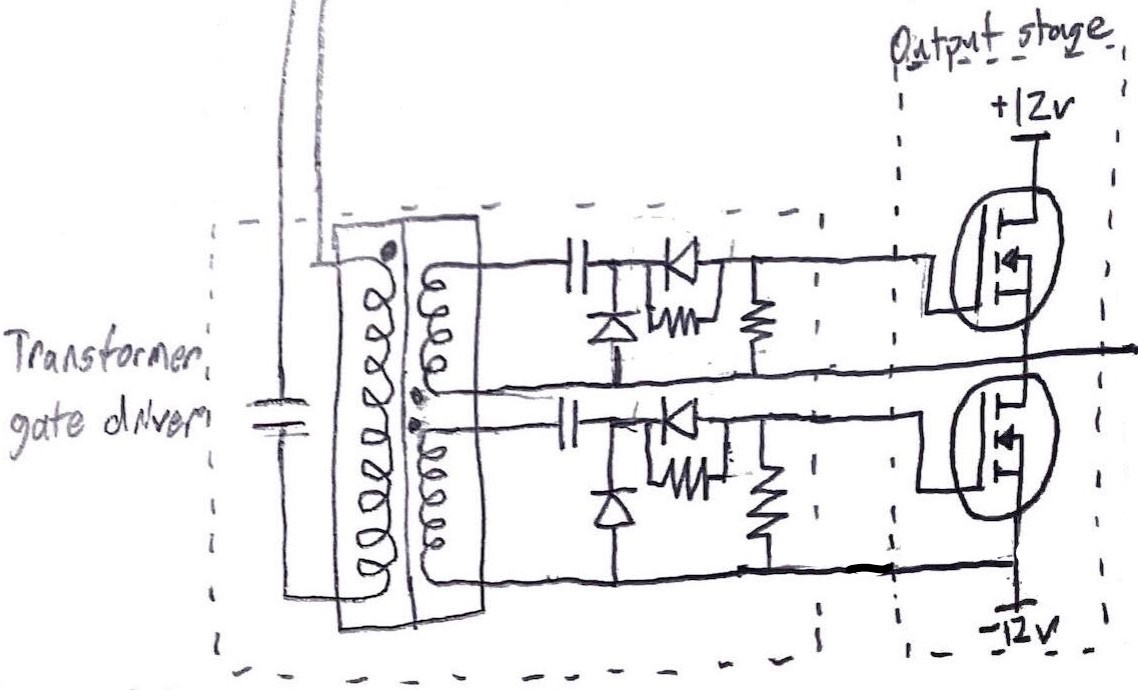 Output stage
+12v
Transformer
gate driver
-12v